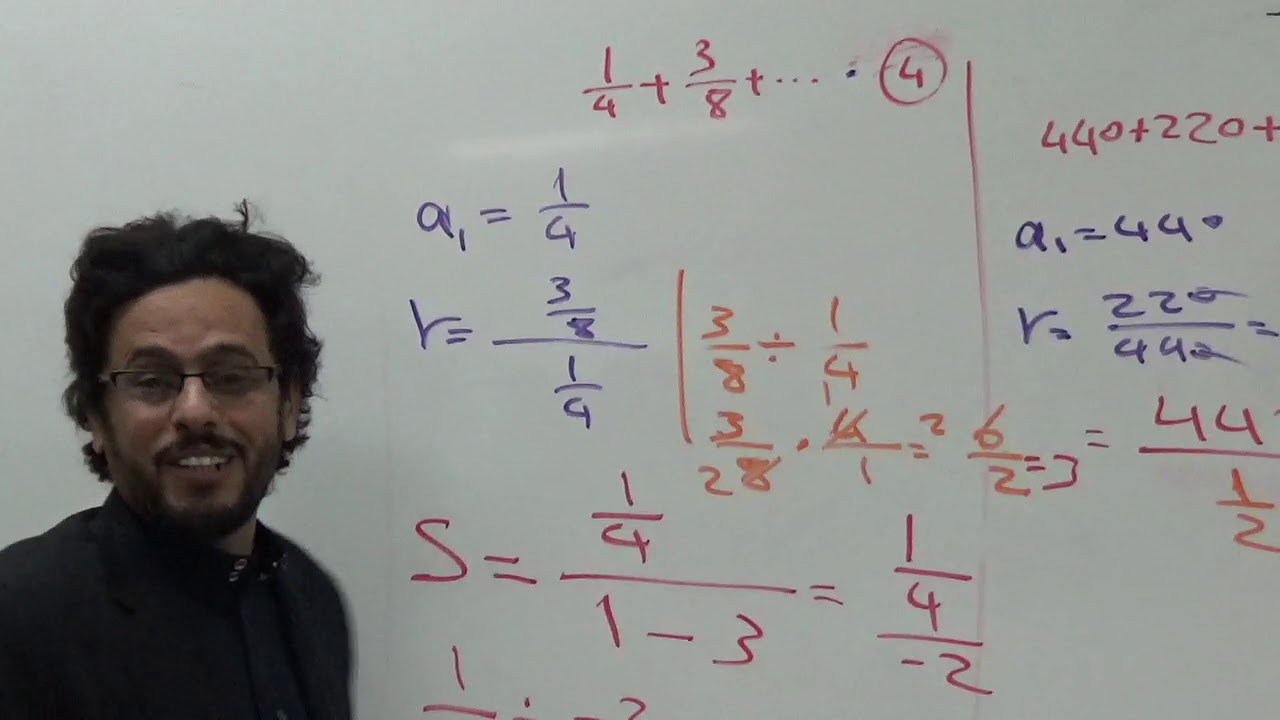 1/4 + 3/8 + ... · ④
a₁ = 1/4
r = (3/8)/(1/4)
3/8 ÷ 1/4
3/2 8 · 1 4/1 = 2 6/2 = 3
S = (1/4)/(1 - 3) = (1/4)/(-2)
1 ÷ -2
440 + 220 +
a₁ = 440
r = 220/440 =
= 44
1/2